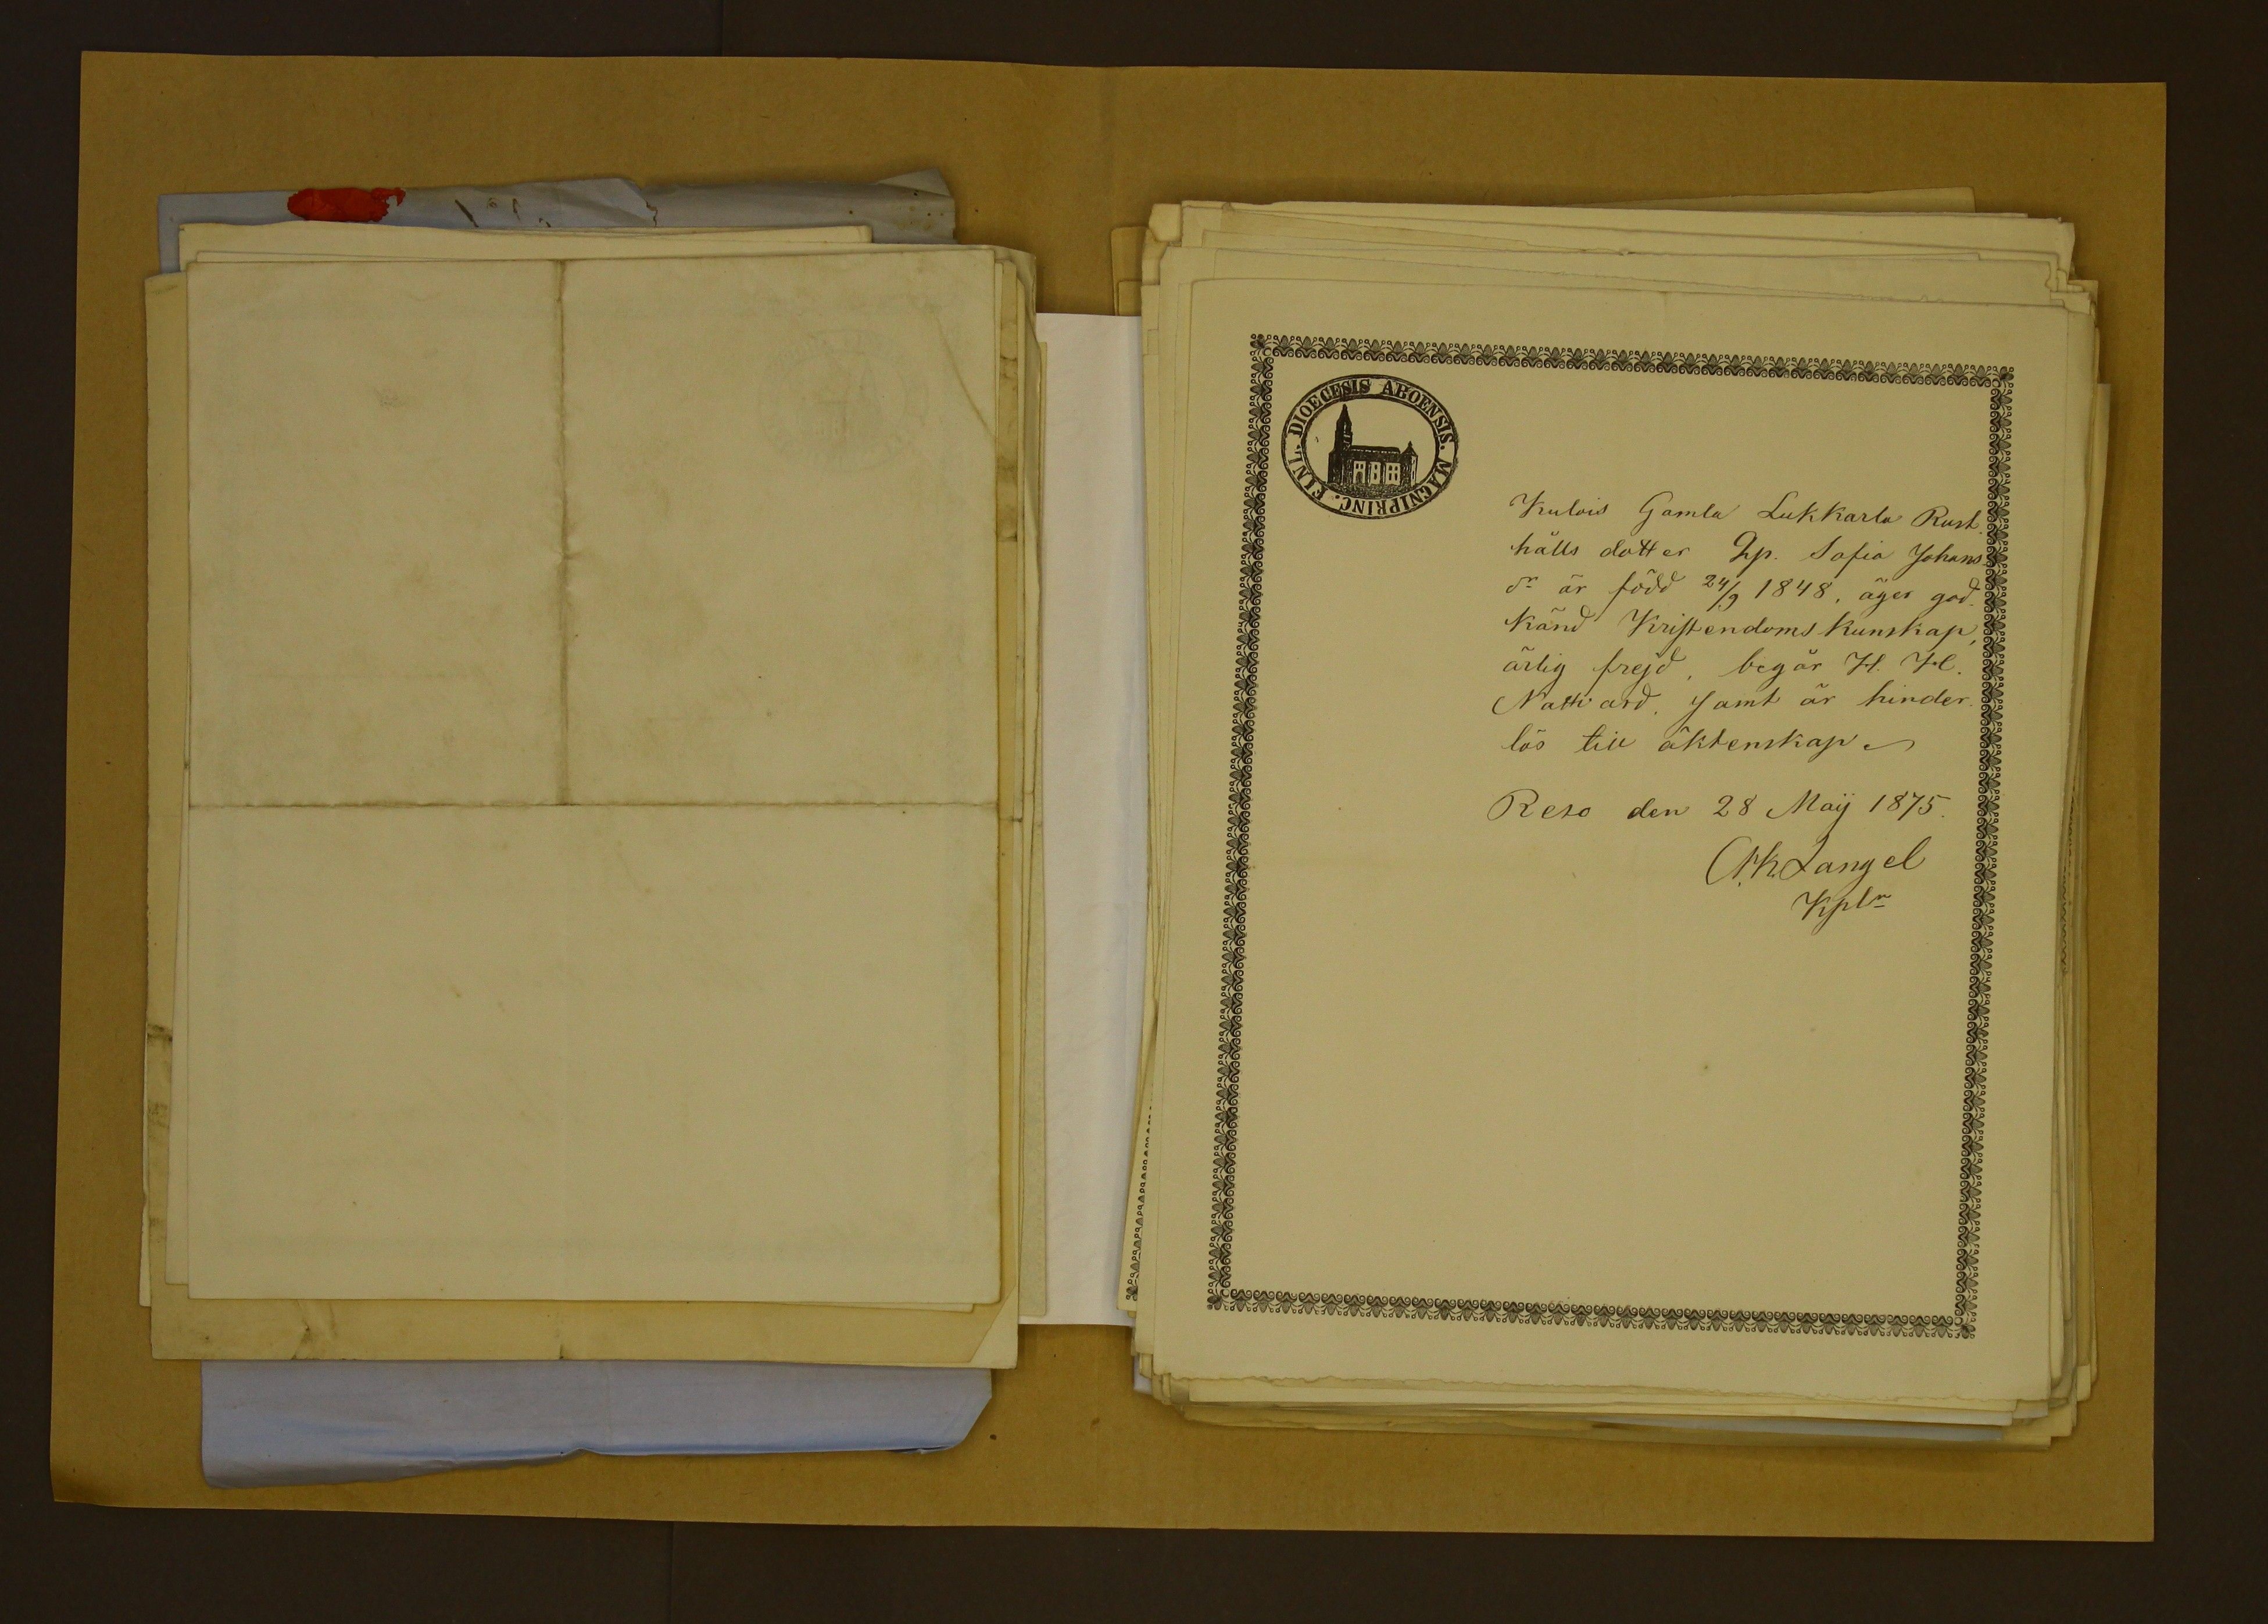 DIOECESIS ABOENSIS. MAGNIPRINC. FINL.
Kulois Gamla Lukkarla Rust
hålls dotter Qp. Sofia Johans
dr är född 24/9 1848, äger god
känd Kristendoms kunskap,
ärlig frejd, begår H. H.
Nattvard, samt är hinder
lös till äktenskap
Reso den 28 Maij 1875.
Langel
Kpln